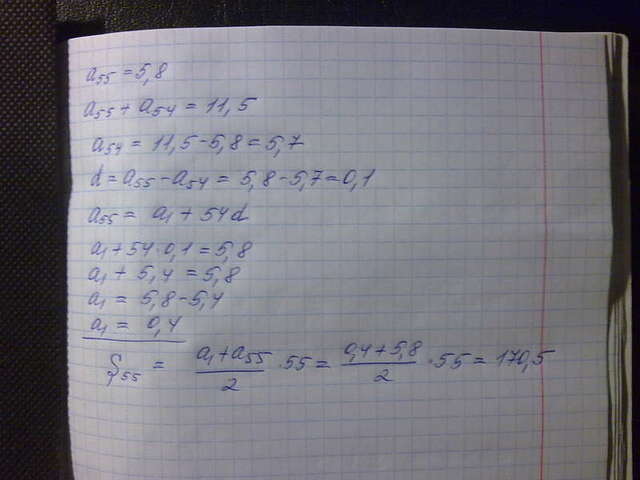 a₅₅ = 5,8
a₅₅ + a₅₄ = 11,5
a₅₄ = 11,5 - 5,8 = 5,7
d = a₅₅ - a₅₄ = 5,8 - 5,7 = 0,1
a₅₅ = a₁ + 54d
a₁ + 54 · 0,1 = 5,8
a₁ + 5,4 = 5,8
a₁ = 5,8 - 5,4
a₁ = 0,4
S₅₅ = (a₁ + a₅₅)/2 · 55 = (0,4 + 5,8)/2 · 55 = 170,5